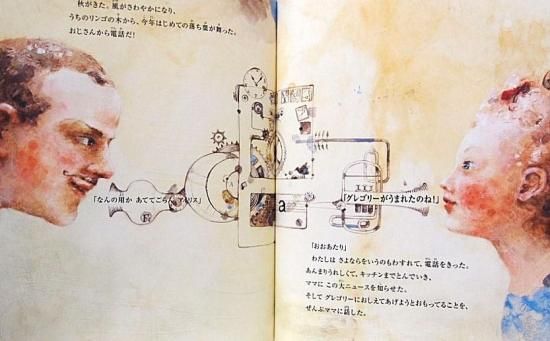 秋がきた。風がさわやかになり、
うちのリンゴの木から、今年はじめての落ち葉が舞った。
おじさんから電話だ!
「なんの用か あててごらん、アイリス」
a
「グレゴリーがうまれたのね!」
「おおあたり」
わたしは さよならをいうのもわすれて、電話をきった。
あんまりうれしくて、キッチンまでとんでいき、
ママに この大ニュースを知らせた。
そして グレゴリーにおしえてあげようとおもってることを、
ぜんぶママに話した。